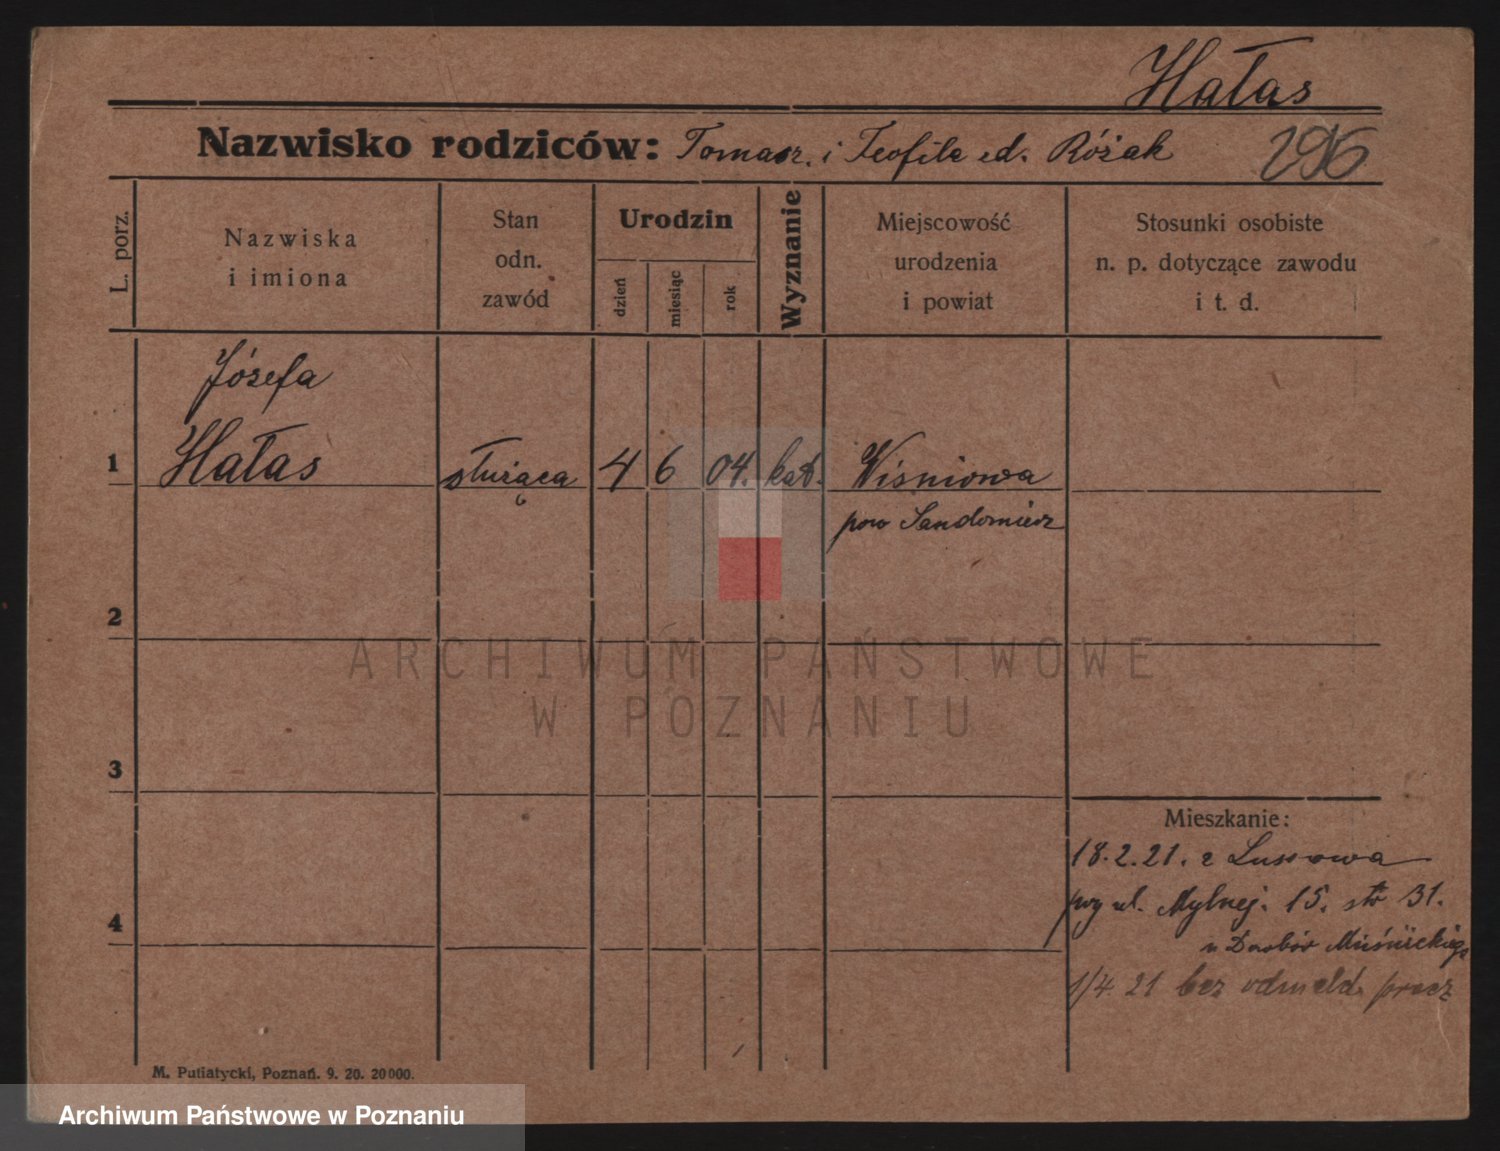 Hałas
Nazwisko rodziców: Tomasz. i Teofila ed. Różak
296
L. porz.
Nazwiska
i imiona
Stan
odn.
zawód
Urodzin
dzień
miesiąc
rok
Wyznanie
Miejscowość
urodzenia
i powiat
Stosunki osobiste
n. p. dotyczące zawodu
i t. d.
Józefa
1 Hałas służąca 4 6 04. kat. Wiśniowa
pow Sandomierz
2
ARCHIWUM PAŃSTWOWE
W POZNANIU
3
Mieszkanie:
18.2.21. z Lussowa
przy ul. Mylnej. 15. str 31.
u Dowbór Muśnickiego
4
1/4. 21 bez odmeld. precz
M. Putiatycki, Poznań. 9. 20. 20000.
Archiwum Państwowe w Poznaniu